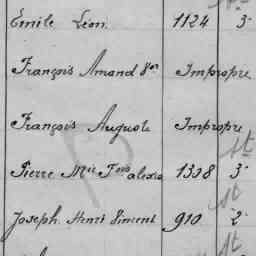 Emile Léon 1124 3
François Amand Impropre
François Auguste Impropre
St
Pierre Mie Fois alexis 1338 3
St
Joseph Henri Viment 910 2
St